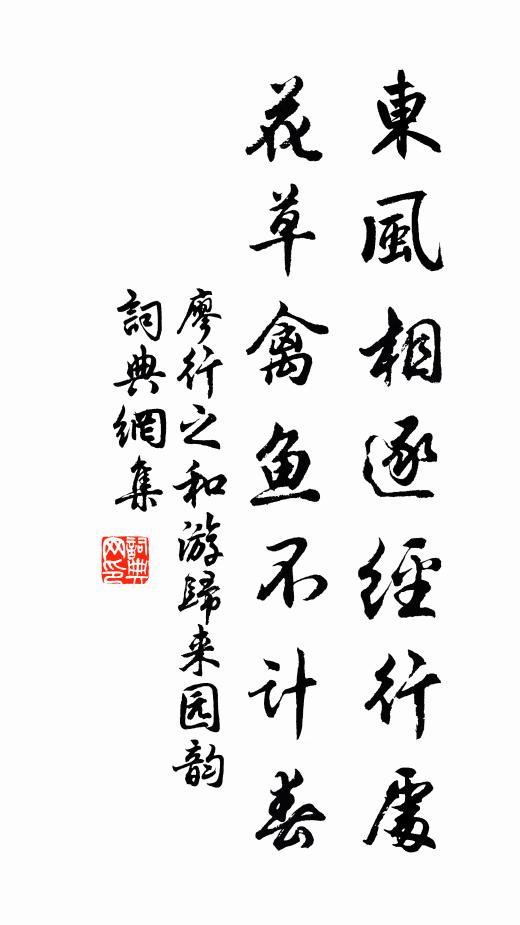 東風相逐經行處
花草禽魚不計春
廖行之和游歸来园韵
詞典網集
詞典网印